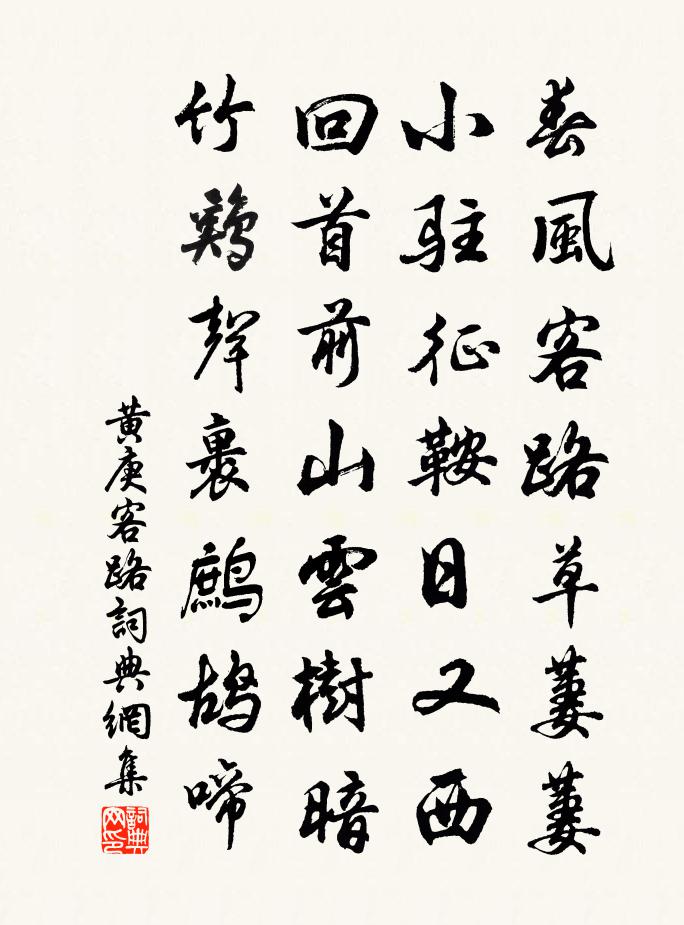 春風客路草萋萋
小駐征鞍日又西
回首前山雲樹暗
竹鷄聲裏鷓鴣啼
黄庚客路詞典網集
詞典网印